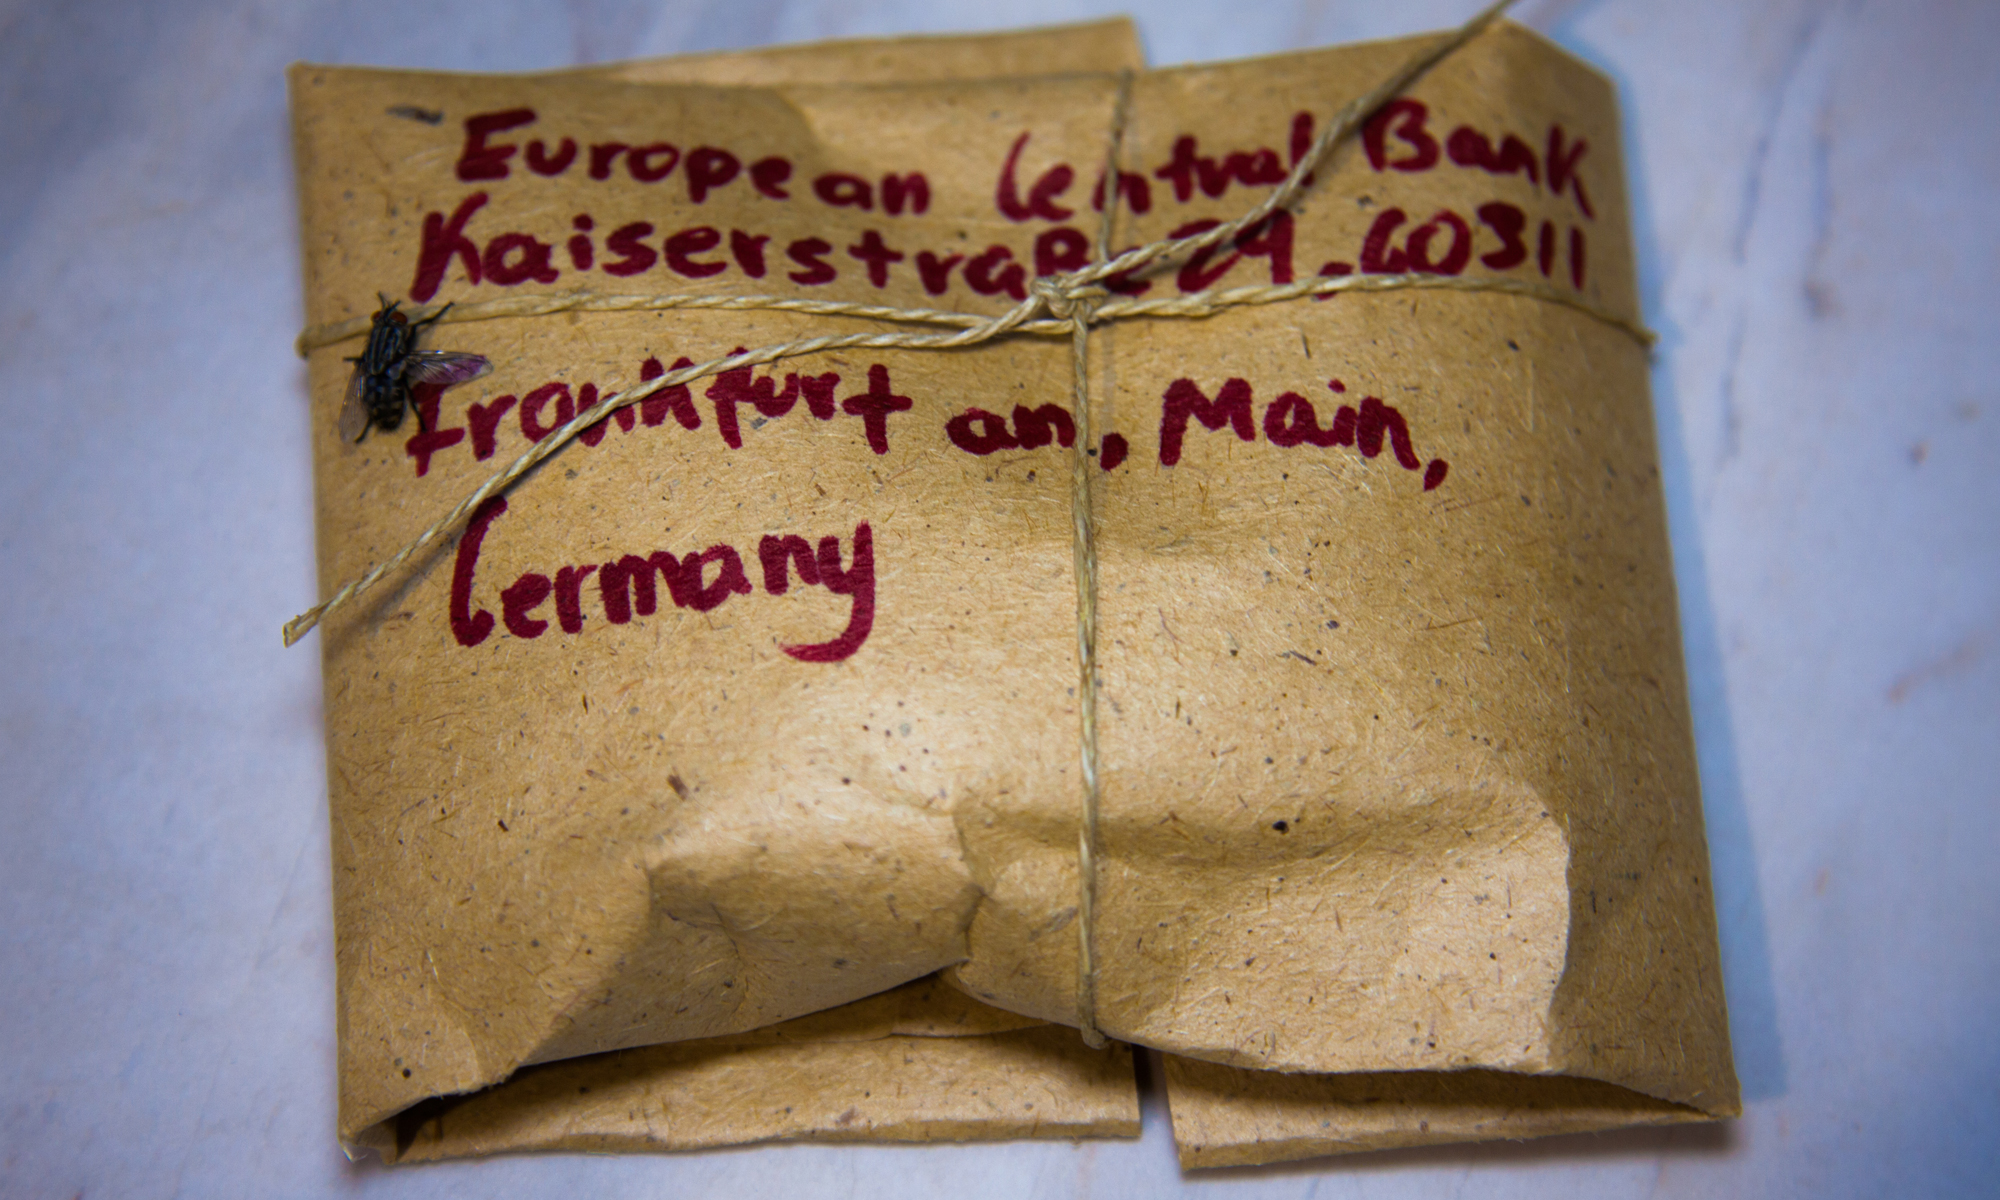 European Central Bank
Kaiserstraße 29, 60311
Frankfurt an, Main,
Germany